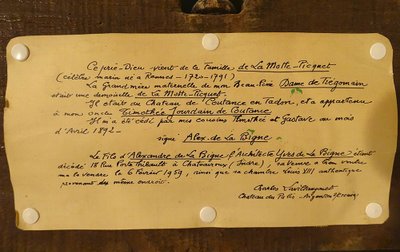 Ce prie-Dieu vient de la famille de La Motte-Picquet
(célèbre marin né à Rennes - 1720-1791)
La Grand'mère maternelle de mon Beau-Père Dame de Tégomain
était une demoiselle de La Motte-Picquet.
Il était au Château de Coutance en Tadon, et a appartenu
à mon oncle Timothée Jourdain de Coutance
Il m'a été cédé par mes cousins Timothée et Gustave au mois
d'Avril 1892 -
signé Alex. de La Bigne
Le Fils d'Alexandre de La Bigne l'Architecte Yves de La Bigne étant
décédé 18 Rue Porte Thibault à Châteauroux (Indre), sa veuve a bien voulu
me le vendre le 6 Février 1959, ainsi que sa chambre Louis XIII authentique
provenant du même endroit.
Charles
Château du